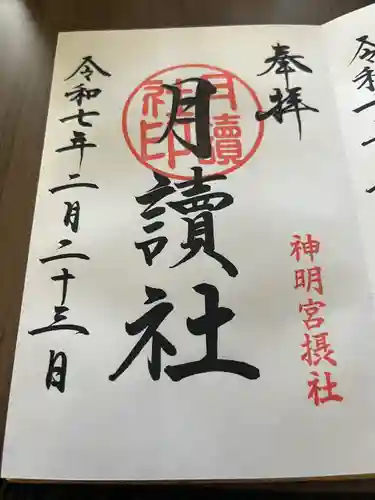 奉拝
神明宮摂社
月讀社
月讀社印
令和七年二月二十三日